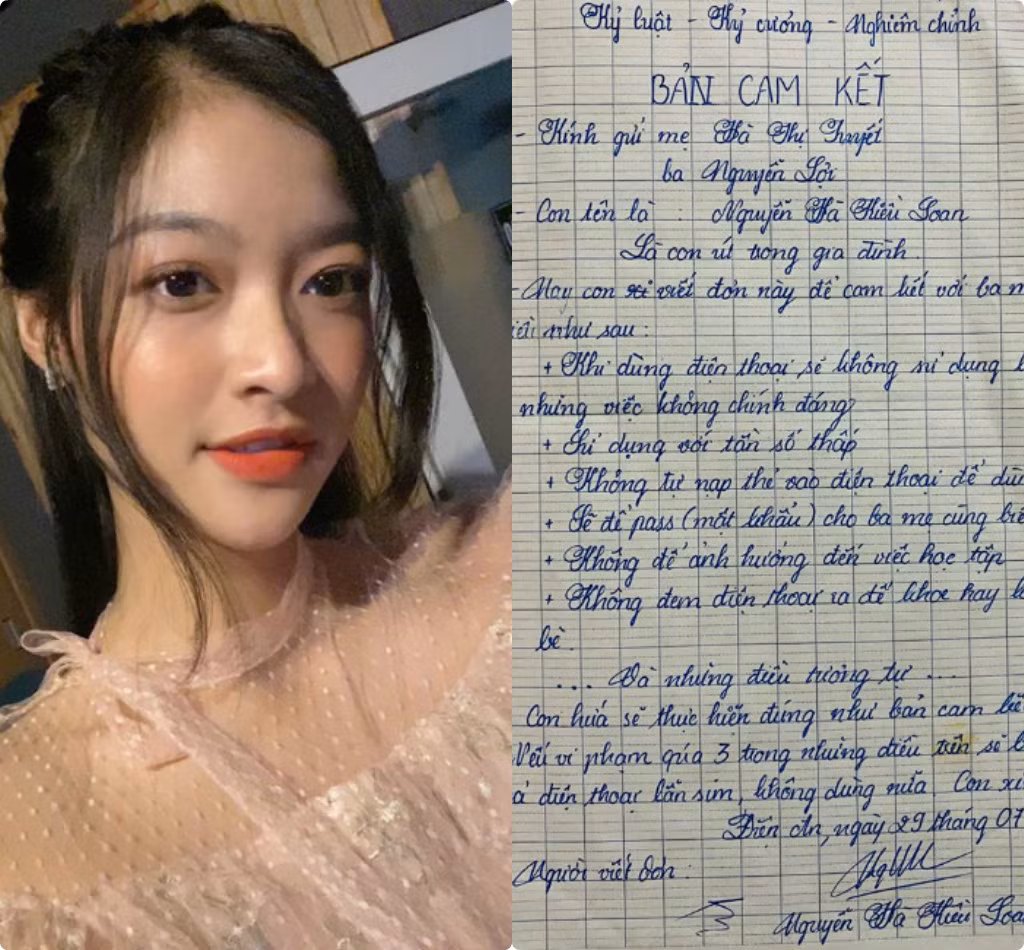 Kỷ luật - Kỷ cương - Nghiêm chỉnh
BẢN CAM KẾT
- Kính gửi mẹ Hà Thị Tuyết
ba Nguyễn Lợi
- Con tên là : Nguyễn Hà Kiều Loan
Là con út trong gia đình.
- Nay con viết đơn này để cam kết với ba
như sau :
+ Khi dùng điện thoại sẽ không sử dụng
những việc không chính đáng
+ Sử dụng với tần số thấp
+ Không tự nạp thẻ vào điện thoại để
+ Sẽ để pass (mật khẩu) cho ba mẹ cùng
+ Không để ảnh hưởng đến việc học tập
+ Không đem điện thoại ra để khoe hay
bè.
... Và những điều tương tự ...
Con hứa sẽ thực hiện đúng như bản cam
Nếu vi phạm quá 3 trong những điều trên sẽ
điện thoại lẫn sim, không dùng nữa. Con
Điện An, ngày 29 tháng 07
Người viết đơn :
Nguyễn Hà Kiều